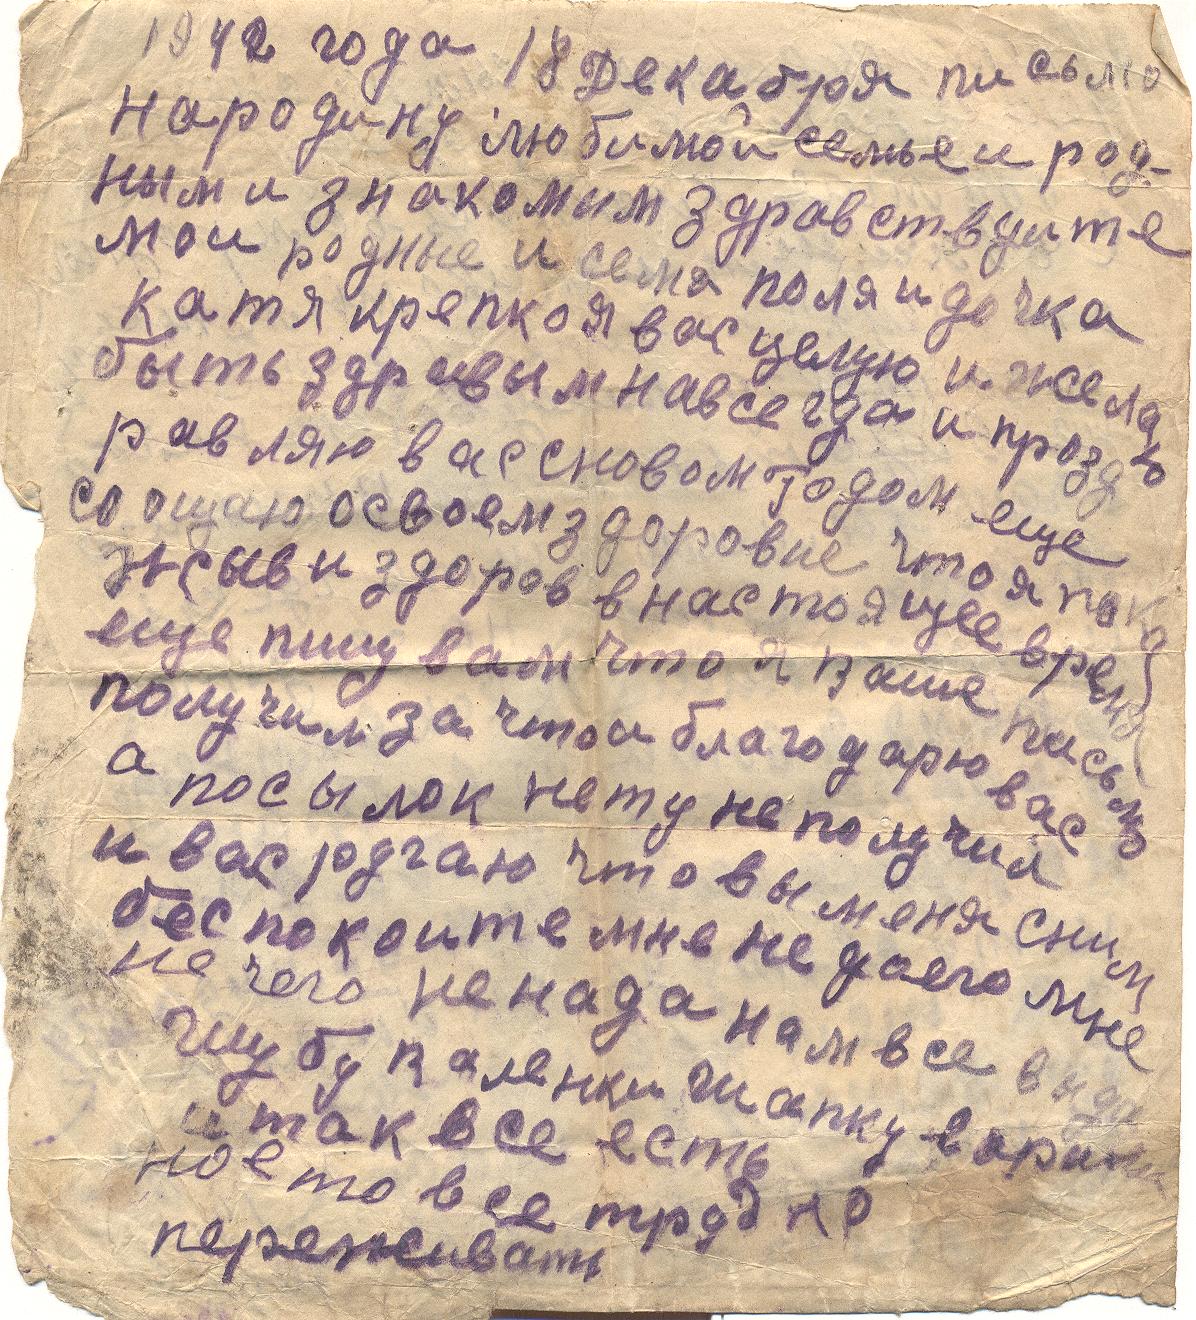 1942 года 18 Декабря письмо
народину любимой семье и род-
ным и знакомим здравствуите
мои родные и семя поля и дочка
катя крепко я вас целую и желаю
быть здравым навсегда и прозд
равляю вас сновом Годом еще
соощаю освоем здоровие что я пока
жыв и здоров внастоящее время
еще пишу вам что я ваше письмо
получил за что и благодарю вас
а посылок нету не получил
и вас ругаю что вы меня сним
беспокоите мне не доего мне
не чего ненада нам все выда
шубу валенки шапку
и так все есть
но ето все трудно
переживать